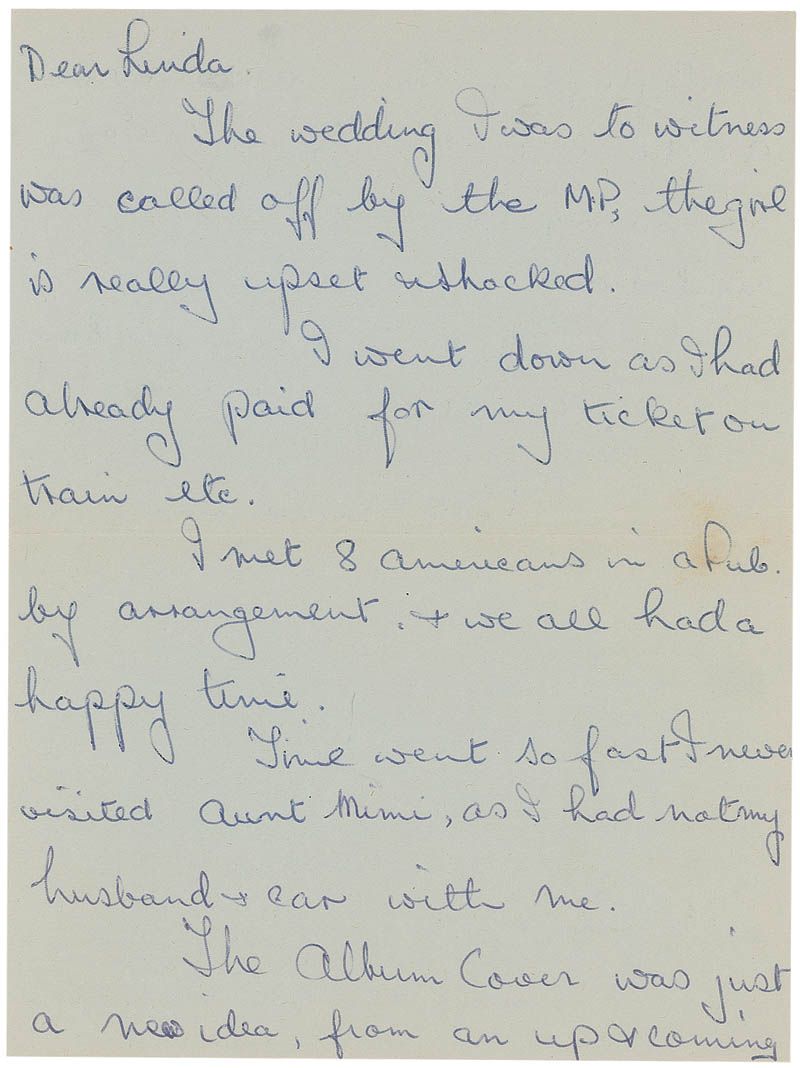 Dear Linda.
The wedding I was to witness
was called off by the M.P., the girl
is really upset & shocked.
I went down as I had
already paid for my ticket on
train etc.
I met 8 americans in a Pub.
by arrangement. & we all had a
happy time.
Time went so fast I never
visited Aunt Mimi, as I had not my
husband & car with me.
The Album Cover was just
a new idea, from an up & coming